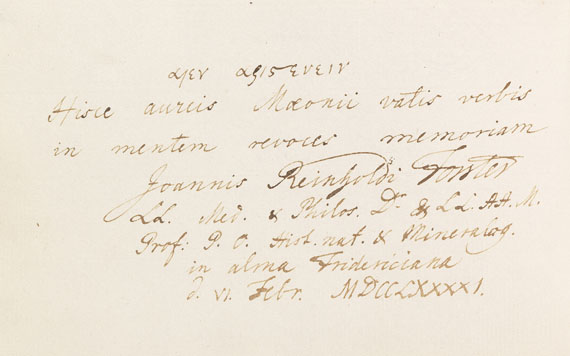 αιεν αριςευειν
Hisce aureis Mæonii vatis verbis
in mentem revoces memoriam
Joannis Reinholdi Forster
LL. Med. & Philos. Dr. & LL. AA. M.
Prof: P. O. Hist. nat. & Mineralog.
in alma Fridericiana
d. VI. Febr. MDCCLXXXXI.